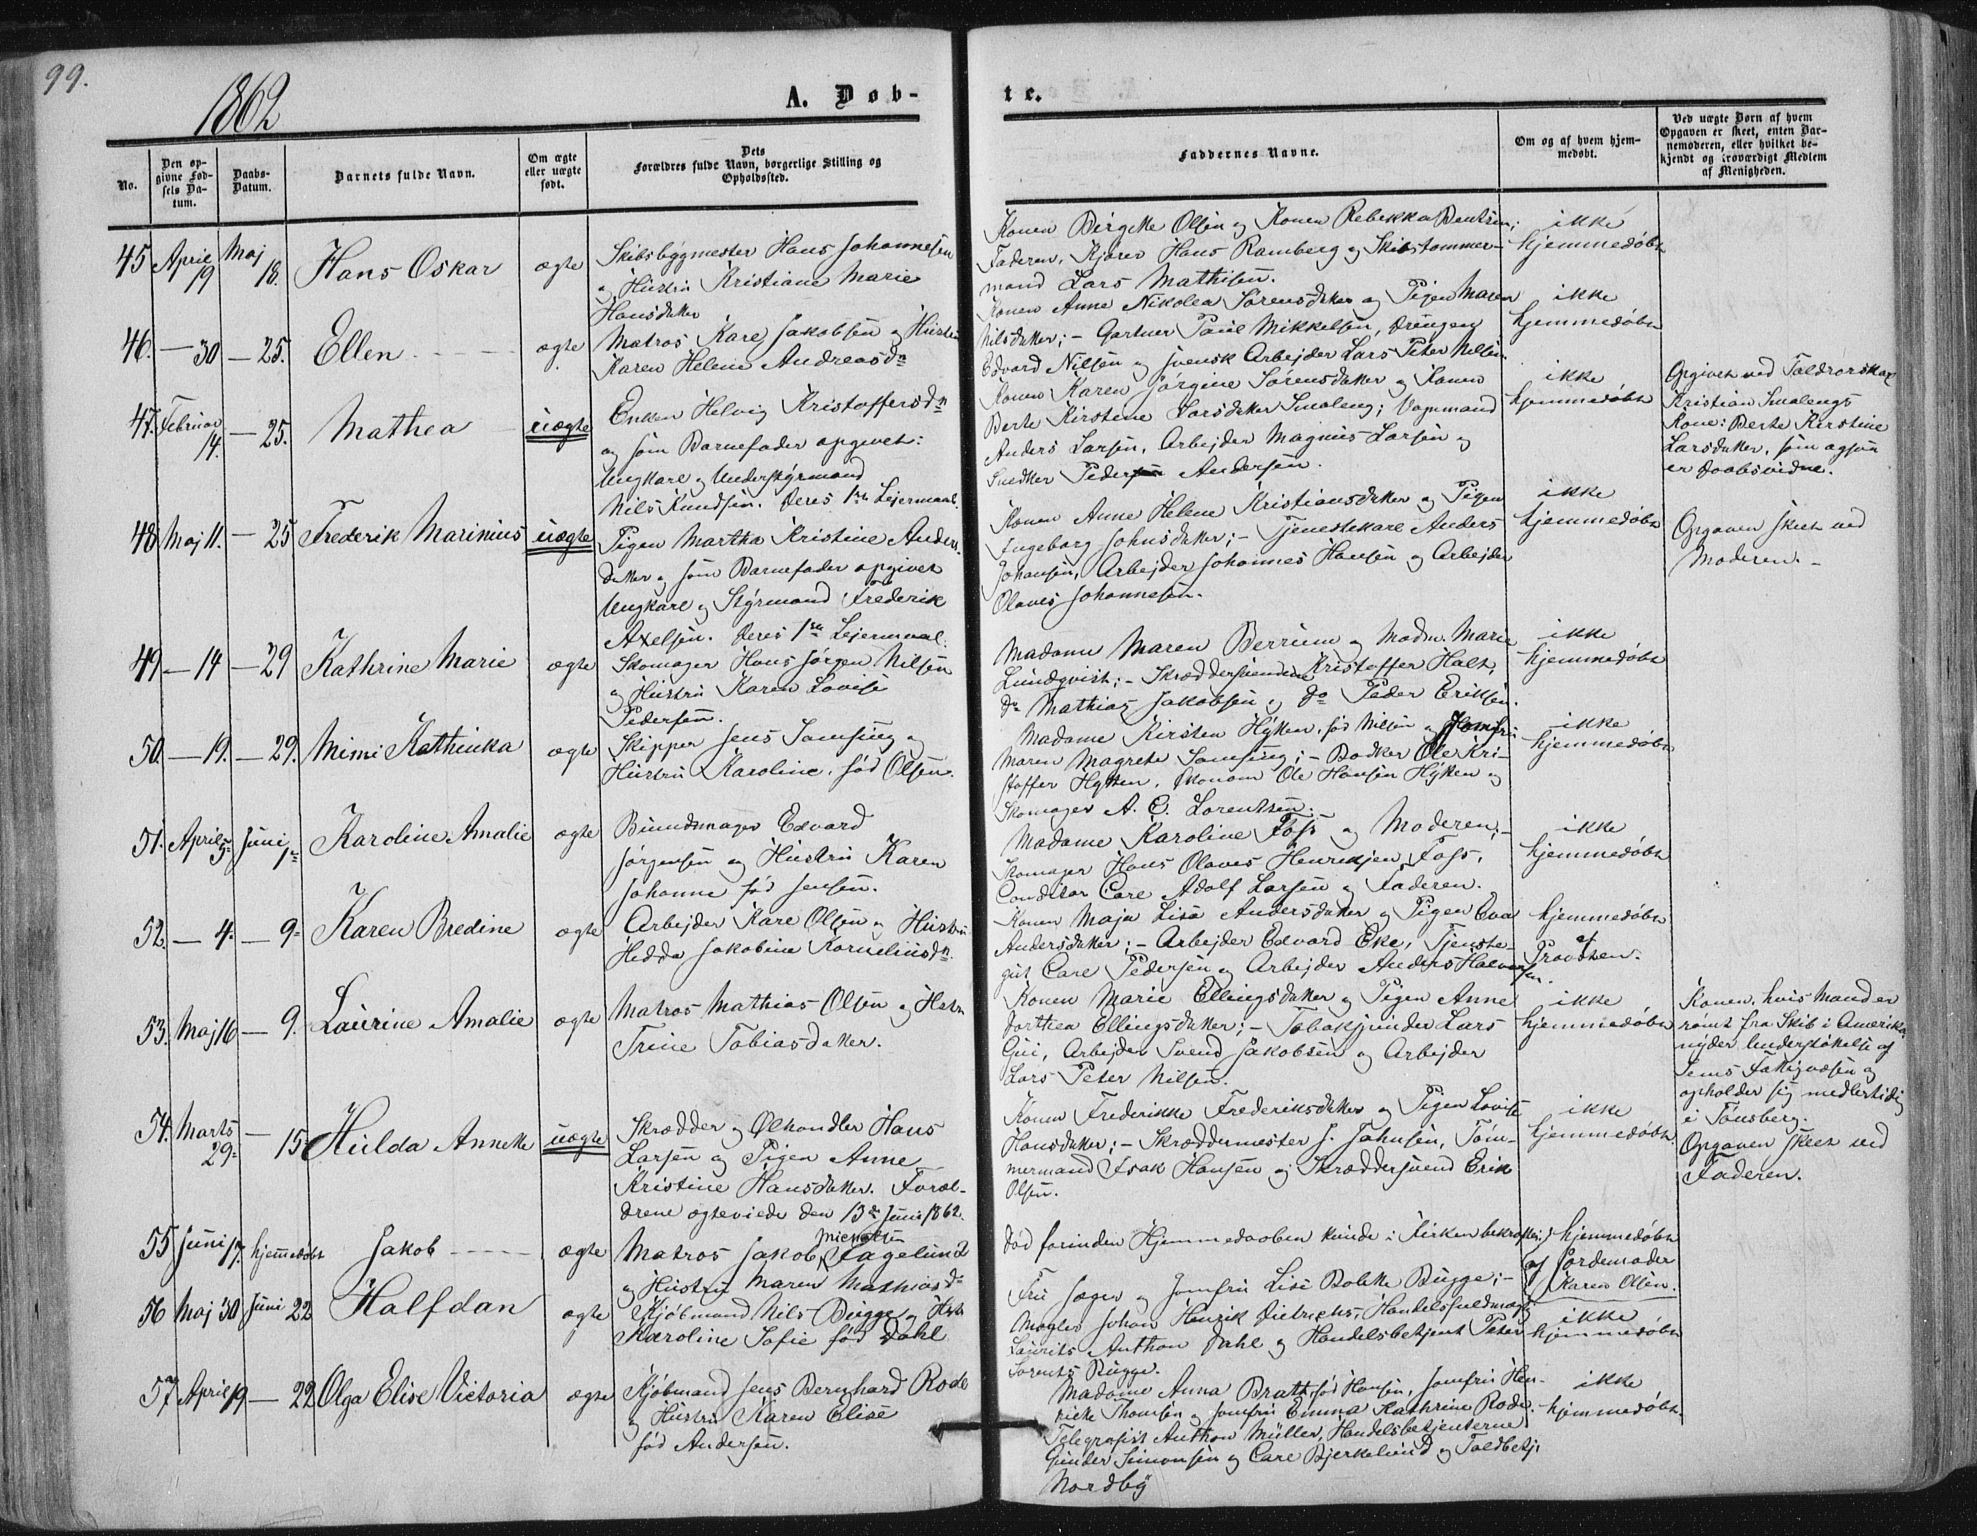 99.
1862
A. Døb-
te.
No.
Den opgivne Fødsels Datum.
Daabs-Datum.
Barnets fulde Navn.
Om ægte eller uægte født.
Dets Forældres fulde Navn, borgerlige Stilling og Opholdssted.
Faddernes Navne.
Om og af hvem hjemmedøbt.
Ved uægte Børn af hvem Opgaven er skeet, enten Barnemoderen, eller hvilket bekjendt og troværdigt Medlem af Menigheden.
45 April 19 Maj 18. Hans Oskar ægte
Skibsbygmester Hans Johannesen
og Hustru Kristiane Marie
Hansdatter
Konen Birgitte Olsen og Konen Rebekka Bentsen;
Faderen, Kjører Hans Ramberg og Skibstømmer-
mand Lars Mathisen.
ikke
hjemmedøbt
46. — 30 — 25. Ellen ægte
Matros Karl Jakobsen og Hustru
Karen Helene Andreasdr
Konen Anne Nikolea Sørensdatter og Pigen Maren
Nilsdatter; - Gartner Paul Mikkelsen, Drengen
Edvard Nilsen og svensk Arbejder Lars Peter Nilsen.
ikke
hjemmedøbt
47. Februar 14. — 25. Mathea uægte
Enken Helvig Kristoffersdr
og som Barnefader opgivet:
Ungkarl og Understyrmand
Nils Knudsen. Deres 1ste Lejermaal.
Konen Karen Jørgine Sørensdatter og Konen
Berte Kirstine Larsdatter Smaleng; Vognmand
Anders Larsen, Arbejder Magnus Larsen og
Snedker Peder Andersen.
ikke
hjemmedøbt
Opgivet ved Toldrorskarl
Kristian Smalengs
Kone: Berte Kirstine
Larsdatter, som ogsaa
er Daabsvidne.
48 Maj 11. — 25 Frederik Marinius uægte
Pigen Martha Kristine Anders-
datter og som Barnefader opgivet
Ungkarl og Styrmand Frederik
Axelsen. Deres 1ste Lejermaal.
Konen Anne Helene Kristiansdatter og Pigen
Ingeborg Johnsdatter; - Tjenestekarl Anders
Johansen, Arbejder Johannes Hansen og Arbejder
Olaves Johannesen.
ikke
hjemmedøbt
Opgaven skeet ved
Moderen. -
49 — 14 — 29 Kathrine Marie ægte
Skomager Hans Jørgen Nilsen
og Hustru Karen Lovise
Pedersen.
Madame Maren Berrum og Madm. Marie
Lundqvist; - Skræddersvendene Kristoffer Holt,
do Mathias Jakobsen og do Peder Eriksen.
ikke
hjemmedøbt
50. — 19. — 29. Mimi Kathinka ægte
Skipper Jens Samsing og
Hustru Karoline, fød Olsen.
Madame Kirsten Hytten, fød Nilsen og Jomfru
Maren Magrete Samsing; - Bødker Ole Kri-
stoffer Hytten, Økonom Ole Hansen Hytten og
Skomager A. C. Lorentsen.
ikke
hjemmedøbt
51. April 5te Juni 1ste Karoline Amalie ægte
Bundtmager Edvard
Jørgensen og Hustru Karen
Johanne fød Jensen.
Madame Karoline Foss og Moderen; -
Skomager Hans Olaves Henriksen Foss,
Conditor Carl Adolf Larsen og Faderen.
ikke
hjemmedøbt
52. — 4. — 9. Karen Bredine ægte
Arbejder Karl Olsen og Hustru
Hedda Jakobine Korneliusdr.
Konen Maja Lisa Andersdatter og Pigen Eva
Andersdatter; - Arbejder Edvard Eke, Tjeneste-
gut Carl Pedersen og Arbejder Anders Halvorsen.
hjemmedøbt
af
Provsten.
53. Maj 16 — 9. Laurine Amalie ægte
Matros Mathias Olsen og Hstr
Trine Tobiasdatter.
Konen Marie Ellingsdatter og Pigen Anne
Dorthea Ellingsdatter; - Tobakspinder Lars
Gui, Arbejder Svend Jakobsen og Arbejder
Lars Peter Nilsen.
ikke
hjemmedøbt
Konen, hvis Mand er
rømt fra Skib i Amerika,
nyder Understøttelse af
Sems Fattigvæsen og
opholder sig medlertidig
i Tønsberg.
54. Marts 29. — 15 Hulda Annette uægte
Skrædder og Ølhandler Hans
Larsen og Pigen Anne
Kristine Hansdatter. Foræl-
drene ægteviede den 13de Juni 1862.
Konen Frederikke Frederiksdatter og Pigen Lovise
Hansdatter; - Skræddermester J. Johnsen, Tøm-
mermand Isak Hansen og Skræddersvend Erik
Olsen.
ikke
hjemmedøbt
Opgaven skeet ved
Faderen.
55 Juni 17. hjemmedøbt Jakob ægte
Matros Jakob Fagelund
og Hustru Maren Mathiasdr
Død forinden Hjemmedaaben kunde i Kirken bekræftes;
hjemmedøbt
af Jordemoder
Karen Olsen.
56 Maj 30 Juni 22 Halfdan ægte
Kjøbmand Nils Bugge og Hstr
Karoline Sofie fød Dahl
Fru Jæger og Jomfru Lise Bolette Bugge; -
Mægler Johan Henrik Dietrichs, Handelsfuldmægt
Laurits Anthon Dahl og Handelsbetjent Peter
Lorents Bugge.
ikke
hjemmedøbt
57 April 19 — 22 Olga Elise Victoria ægte
Kjøbmand Jens Bernhard Rode
og Hustru Karen Elise
fød Andersen.
Madame Anna Bratt, fød Hansen, Jomfru Hen-
rikke Thomsen og Jomfru Emma Kathrine Rode.
Telegrafist Anthon Müller, Handelsbetjenterne
Gunder Simonsen og Carl Bjerkelund og Toldbetj.
Nordby
ikke
hjemmedøbt.